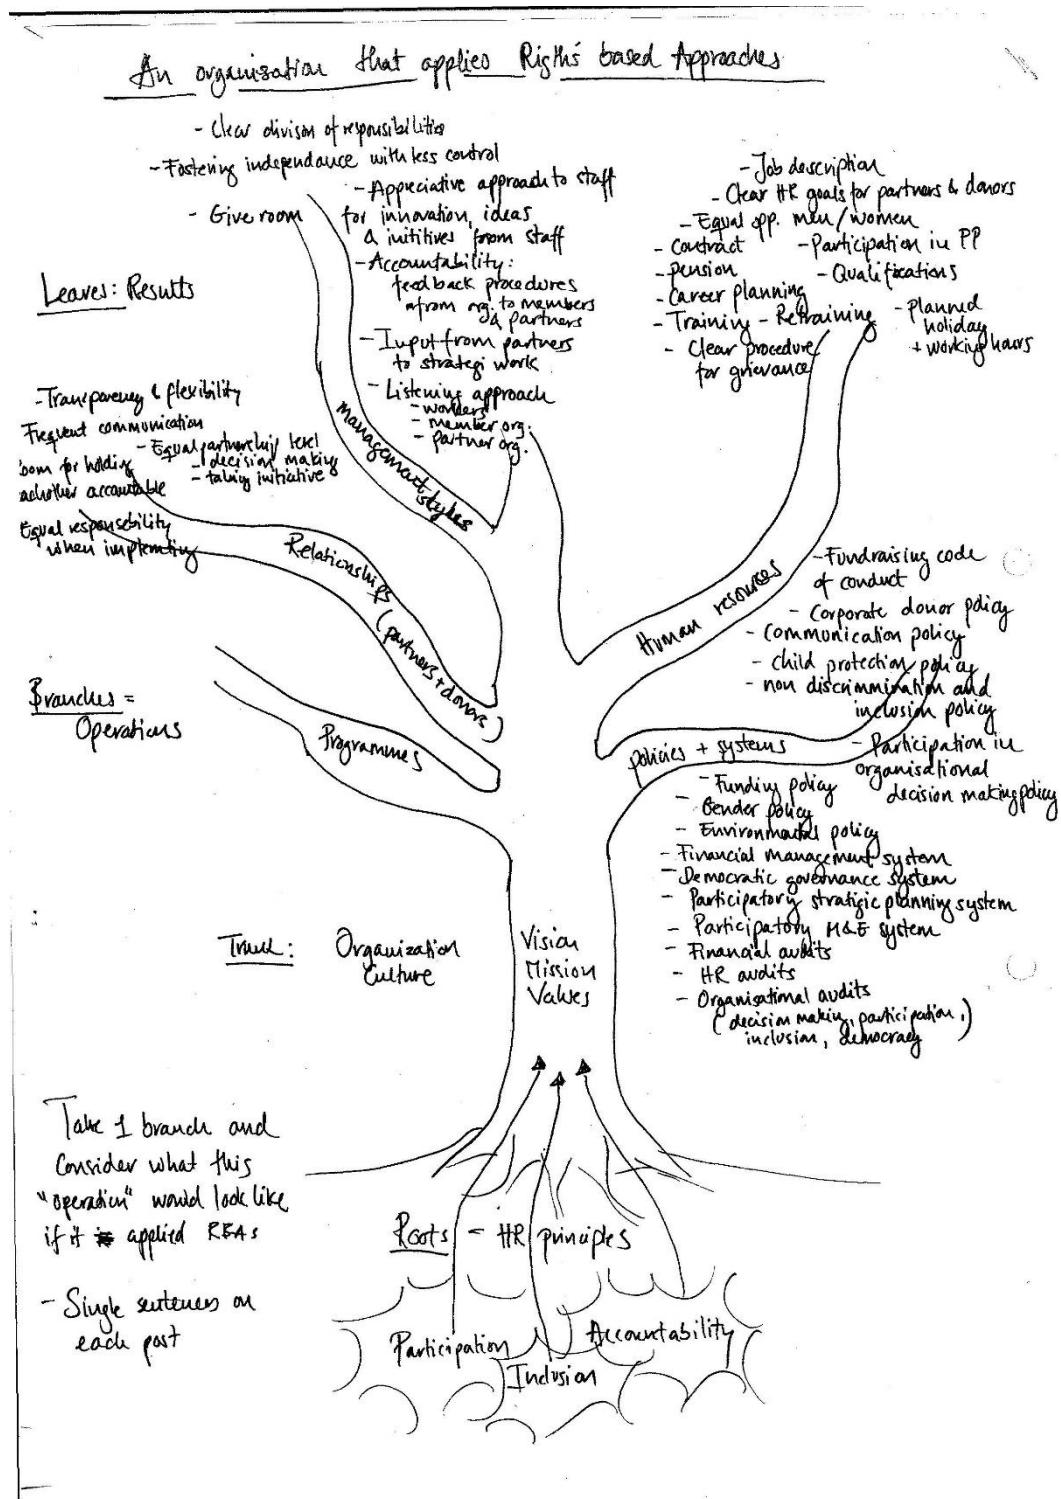 An organisation that applies Rigths based Approaches
- Clear divison of responsibilities
- Fostering independance with less control
- Appreciative approach to staff
- Give room for innovation, ideas
& inititives from staff
- Accountability:
feedback procedures
from org. to members
& partners
- Input from partners
to strategi work
- Listening approach
- workers
- member org.
- partner org.
- Job description
- Clear HR goals for partners & donors
- Equal opp. men/women
- Contract
- Participation in PP
- Pension
- Qualifications
- Career planning
- Training - Retraining
- Planned
holiday
+ working hours
- Clear procedure
for grievance
Leaves: Results
- Transparency & flexibility
Frequent communication
- Equal partnership level
- decision making
- taking initiative
oom for holding
achother accountable
Equal responsebility
when implemting
management styles
Relationships (partners + donors)
Human resources
Programmes
policies + systems
Branches =
Operations
- Fundraising code
of conduct
- Corporate donor policy
- Communication policy
- child protection policy
- non discrimmination and
inclusion policy
- Participation in
organisational
decision making policy
- Funding policy
- Gender policy
- Environmental policy
- Financial management system
- Democratic governance system
- Participatory stratigic planning system
- Participatory M&E system
- Financial audits
- HR audits
- Organisational audits
(decision making, participation,
inclusion, democracy)
Trunk: Organization
Culture
Vision
Mission
Values
Take 1 branch and
Consider what this
"operation" would look like
if it applied RBAs
- Single sentences on
each post
Roots - HR principles
Participation
Inclusion
Accountability